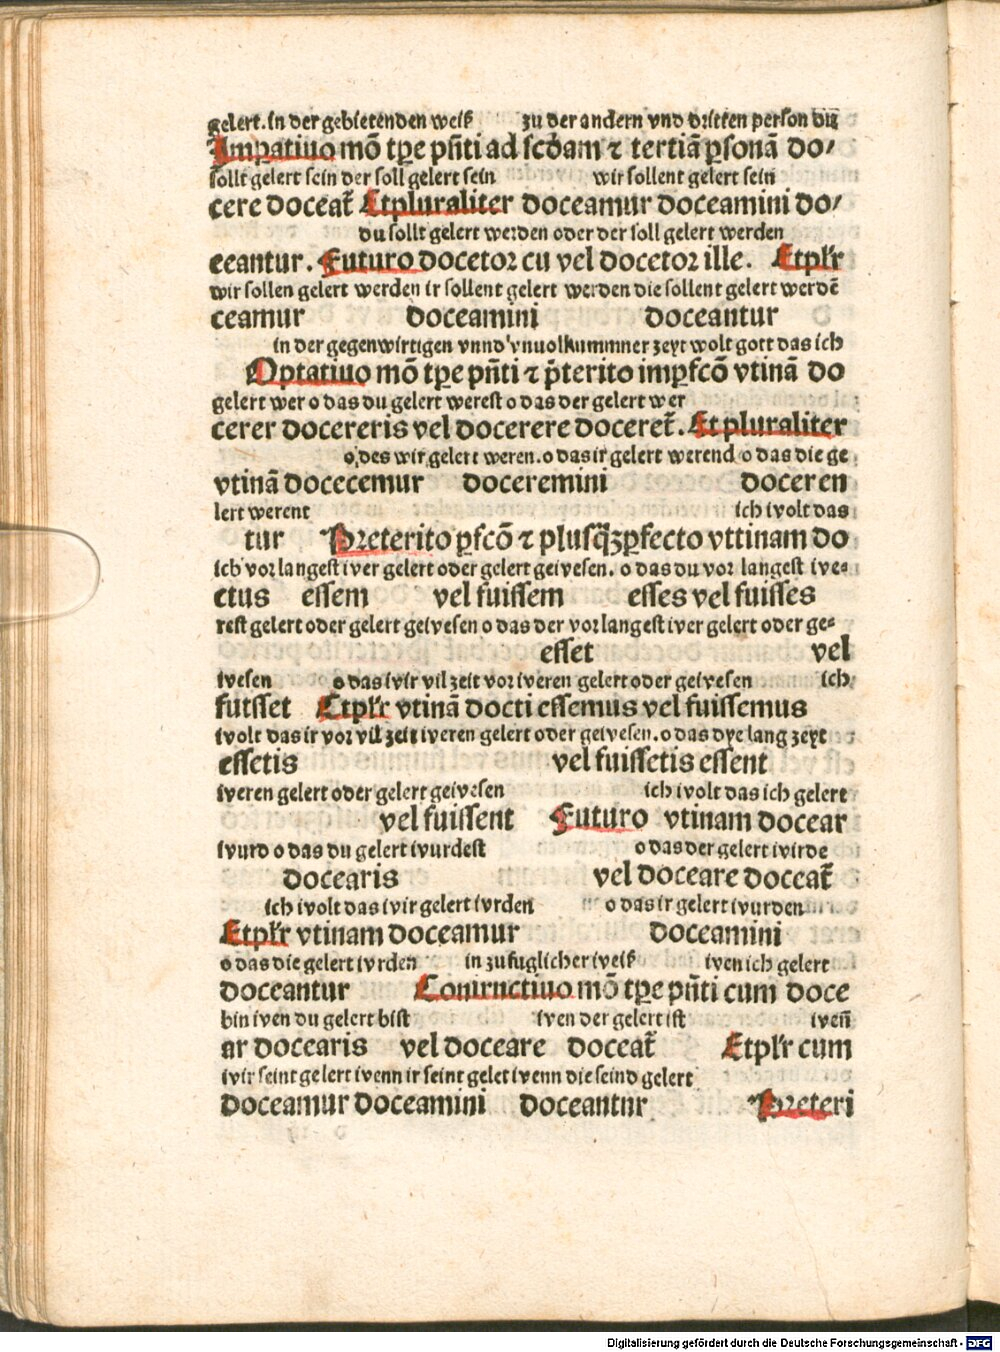 gelert. in der gebietenden weiß zu der andern vnd dritten person diz
Impatiuo mō tp̄e pn̄ti ad scd̄am ⁊ tertiā ꝑsonā do/
sollt gelert sein der soll gelert sein wir sollent gelert sein
cere doceat̄ Etpluraliter doceamur doceamini do/
du sollt gelert werden oder der soll gelert werden
ceantur. Futuro docetor cu vel docetor ille. Etpl'r
wir sollen gelert werden ir sollent gelert werden die sollent gelert werdē
ceamur doceamini doceantur
in der gegenwirtigen vnnd vnuolkummner zeyt wolt gott das ich
Optatiuo mō tp̄e pn̄ti ⁊ p̄terito imꝑfcō vtinā do
gelert wer o das du gelert werest o das der gelert wer
cerer docereris vel docerere doceret̄. Et pluraliter
o des wir gelert weren. o das ir gelert werend o das die ge
vtinā docecemur doceremini doceren
lert werent ich wolt das
tur Preterito ꝑfcō ⁊ plusq̄ꝫꝑfecto vttinam do
ich vor langest wer gelert oder gelert gewesen. o das du vor langest we-
ctus essem vel fuissem esses vel fuisses
rest gelert oder gelert gewesen o das der vor langest wer gelert oder ge-
esset vel
wesen o das wir vil zeit vor weren gelert oder gewesen ich
futsset Etpl'r vtinā docti essemus vel fuissemus
wolt das ir vor vil zeit weren gelert oder gewesen. o das dye lang zeyt
essetis vel fuissetis essent
weren gelert oder gelert gewesen ich wolt das ich gelert
vel fuissent Futuro vtinam docear
wurd o das du gelert wurdest o das der gelert wirde
docearis vel doceare doceat̄
ich wolt das wir gelert wrden o das ir gelert wurden
Etpl'r vtinam doceamur doceamini
o das die gelert wrden in zufuglicher weiß wen ich gelert
doceantur Coniructiuo mō tp̄e pn̄ti cum doce
bin wen du gelert bist wen der gelert ist wen̄
ar docearis vel doceare doceat̄ Etpl'r cum
wir seint gelert wenn ir seint gelet wenn die seind gelert
doceamur doceamini doceantur Preteri
Digitalisierung gefördert durch die Deutsche Forschungsgemeinschaft - DFG